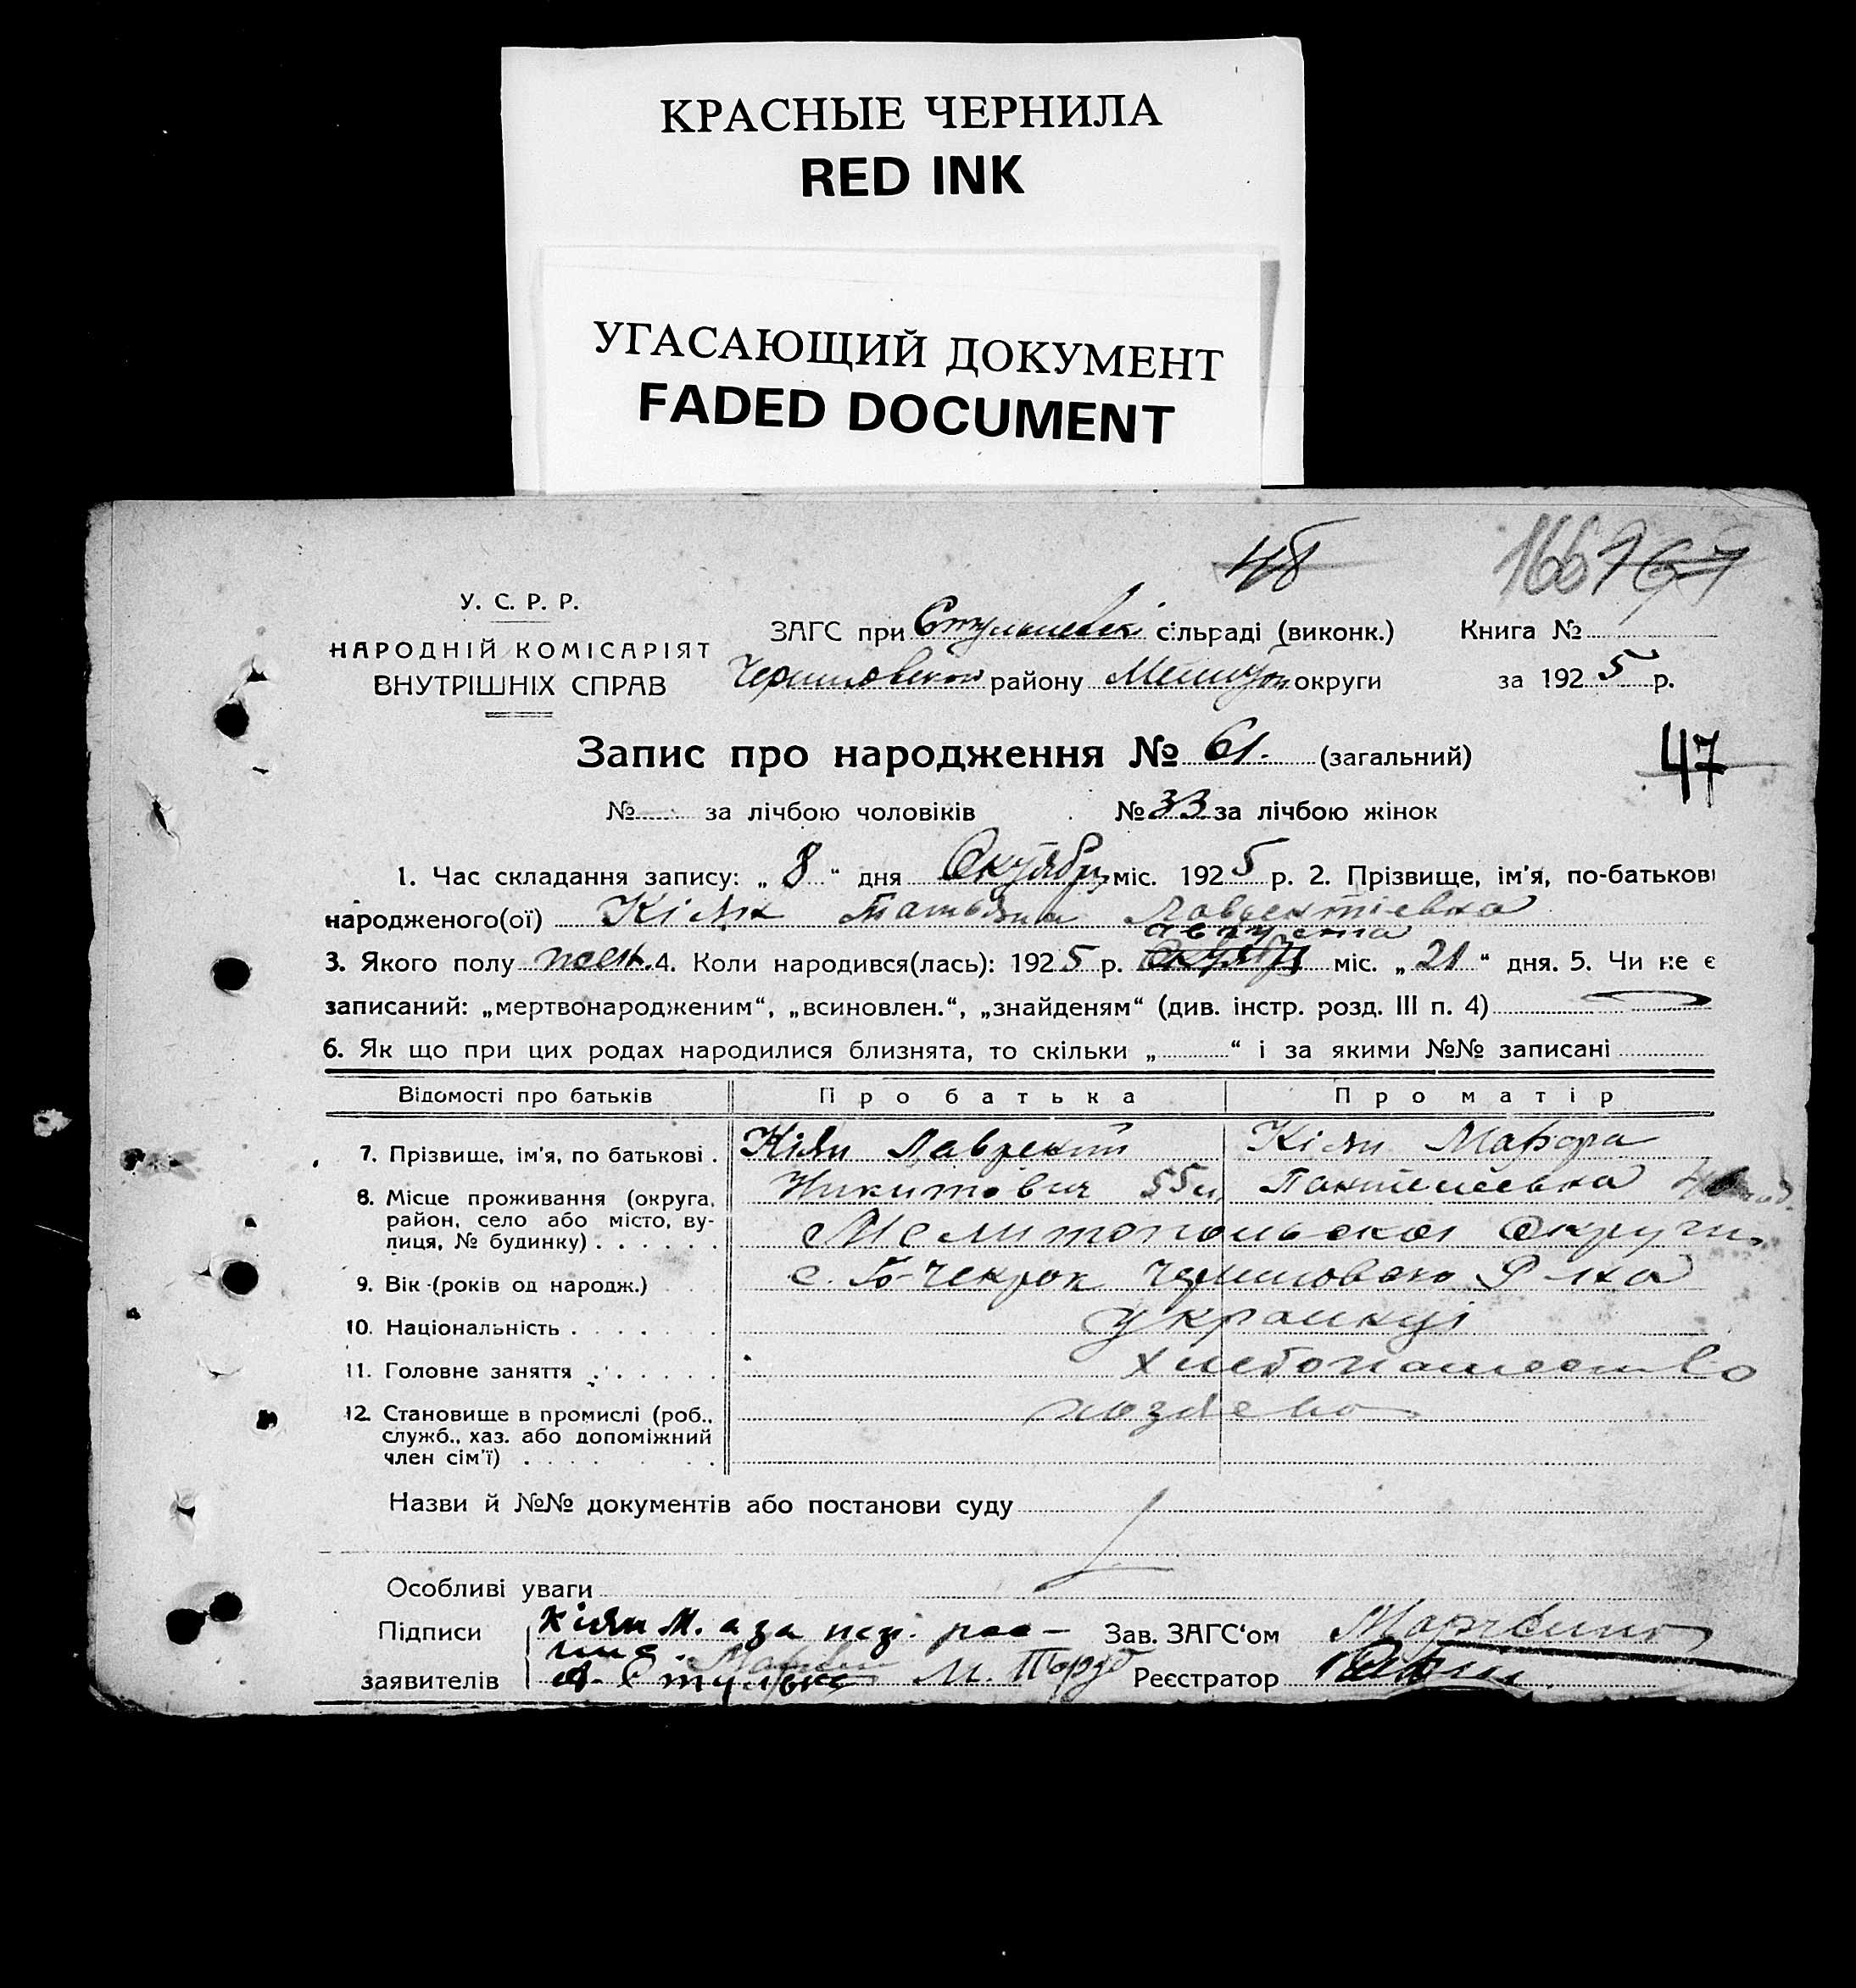 КРАСНЫЕ ЧЕРНИЛА
RED INK
УГАСАЮЩИЙ ДОКУМЕНТ
FADED DOCUMENT
48
166 167
У. С. Р. Р.
НАРОДНІЙ КОМІСАРІЯТ
ВНУТРІШНІХ СПРАВ
ЗАГС при сільраді (виконк.) Книга №
району округи за 1925 р.
Запис про народження № 61. (загальний)
47
№ за лічбою чоловіків № 33 за лічбою жінок
1. Час складання запису: „8“ дня Октября міс. 1925 р. 2. Прізвище, ім'я, по-батькові
народженого(ої) Кіян Татьяна Лаврентіевна
августа
3. Якого полу жен. 4. Коли народився(лась): 1925 р. Октября міс. „21“ дня. 5. Чи не є
записаний: „мертвонародженим“, „всиновлен.“, „знайденям“ (див. інстр. розд. III п. 4)
6. Як що при цих родах народилися близнята, то скільки „ “ і за якими №№ записані
Відомості про батьків Про батька Про матір
7. Прізвище, ім'я, по батькові . Кіян Лаврентій Кіян Марфа
8. Місце проживання (округа, район, село або місто, вулиця, № будинку) . . . . . . Никитович 55 Пантелеевна
Мелитопольскоі Округи
9. Вік (років од народж.) с. Б-Чекрак
10. Національність . . . . . . украинці
11. Головне заняття . . . . . . хлебопашество
12. Становище в промислі (роб., служб., хаз. або допоміжний член сім'ї) . . . . . . хозяева
Назви й №№ документів або постанови суду
Особливі уваги
Підписи Кіян М. а за неї рас-
Зав. ЗАГС'ом
заявителів
Реєстратор